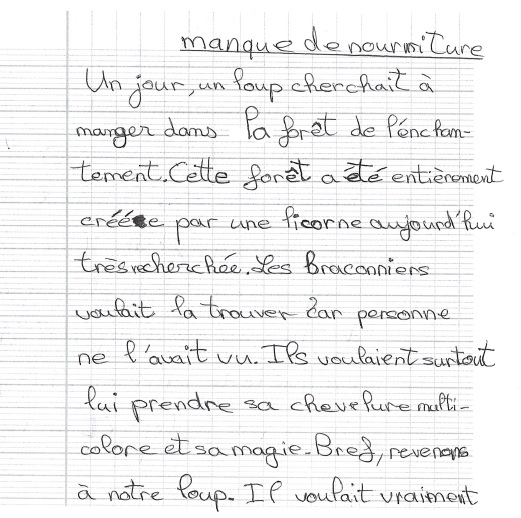 manque de nourriture
Un jour, un loup cherchait à
manger dans la forêt de l'enchan-
tement. Cette forêt a été entièrement
créée par une licorne aujourd'hui
très recherchée. Les Braconniers
voulait la trouver car personne
ne l'avait vu. Ils voulaient surtout
lui prendre sa chevelure multi-
colore et sa magie. Bref, revenons
à notre loup. Il voulait vraiment